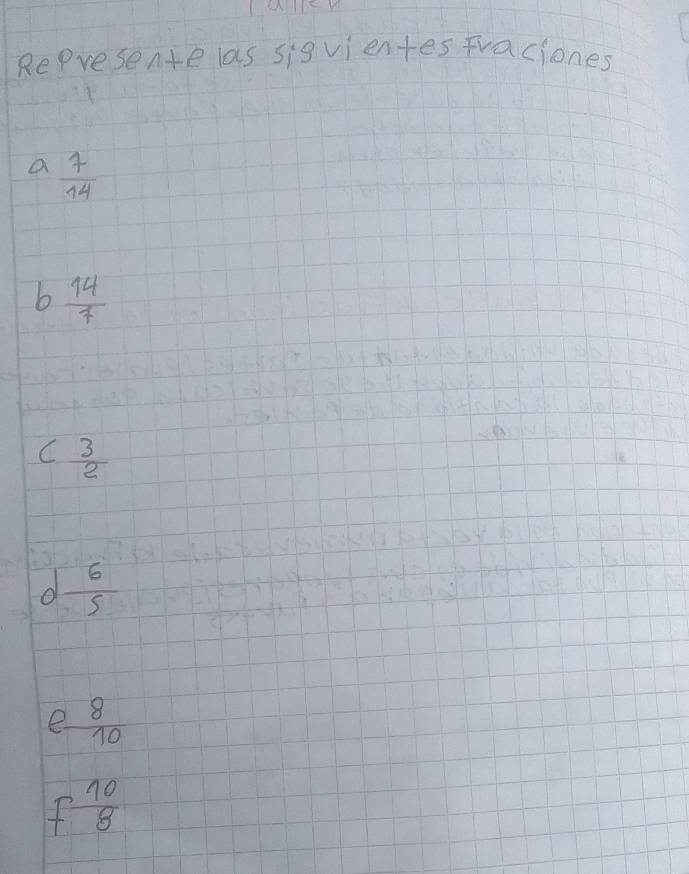 Taller
Represente las siguientes Fraciones
a 7/14
b 14/7
c 3/2
d 6/5
e 8/10
F 10/8